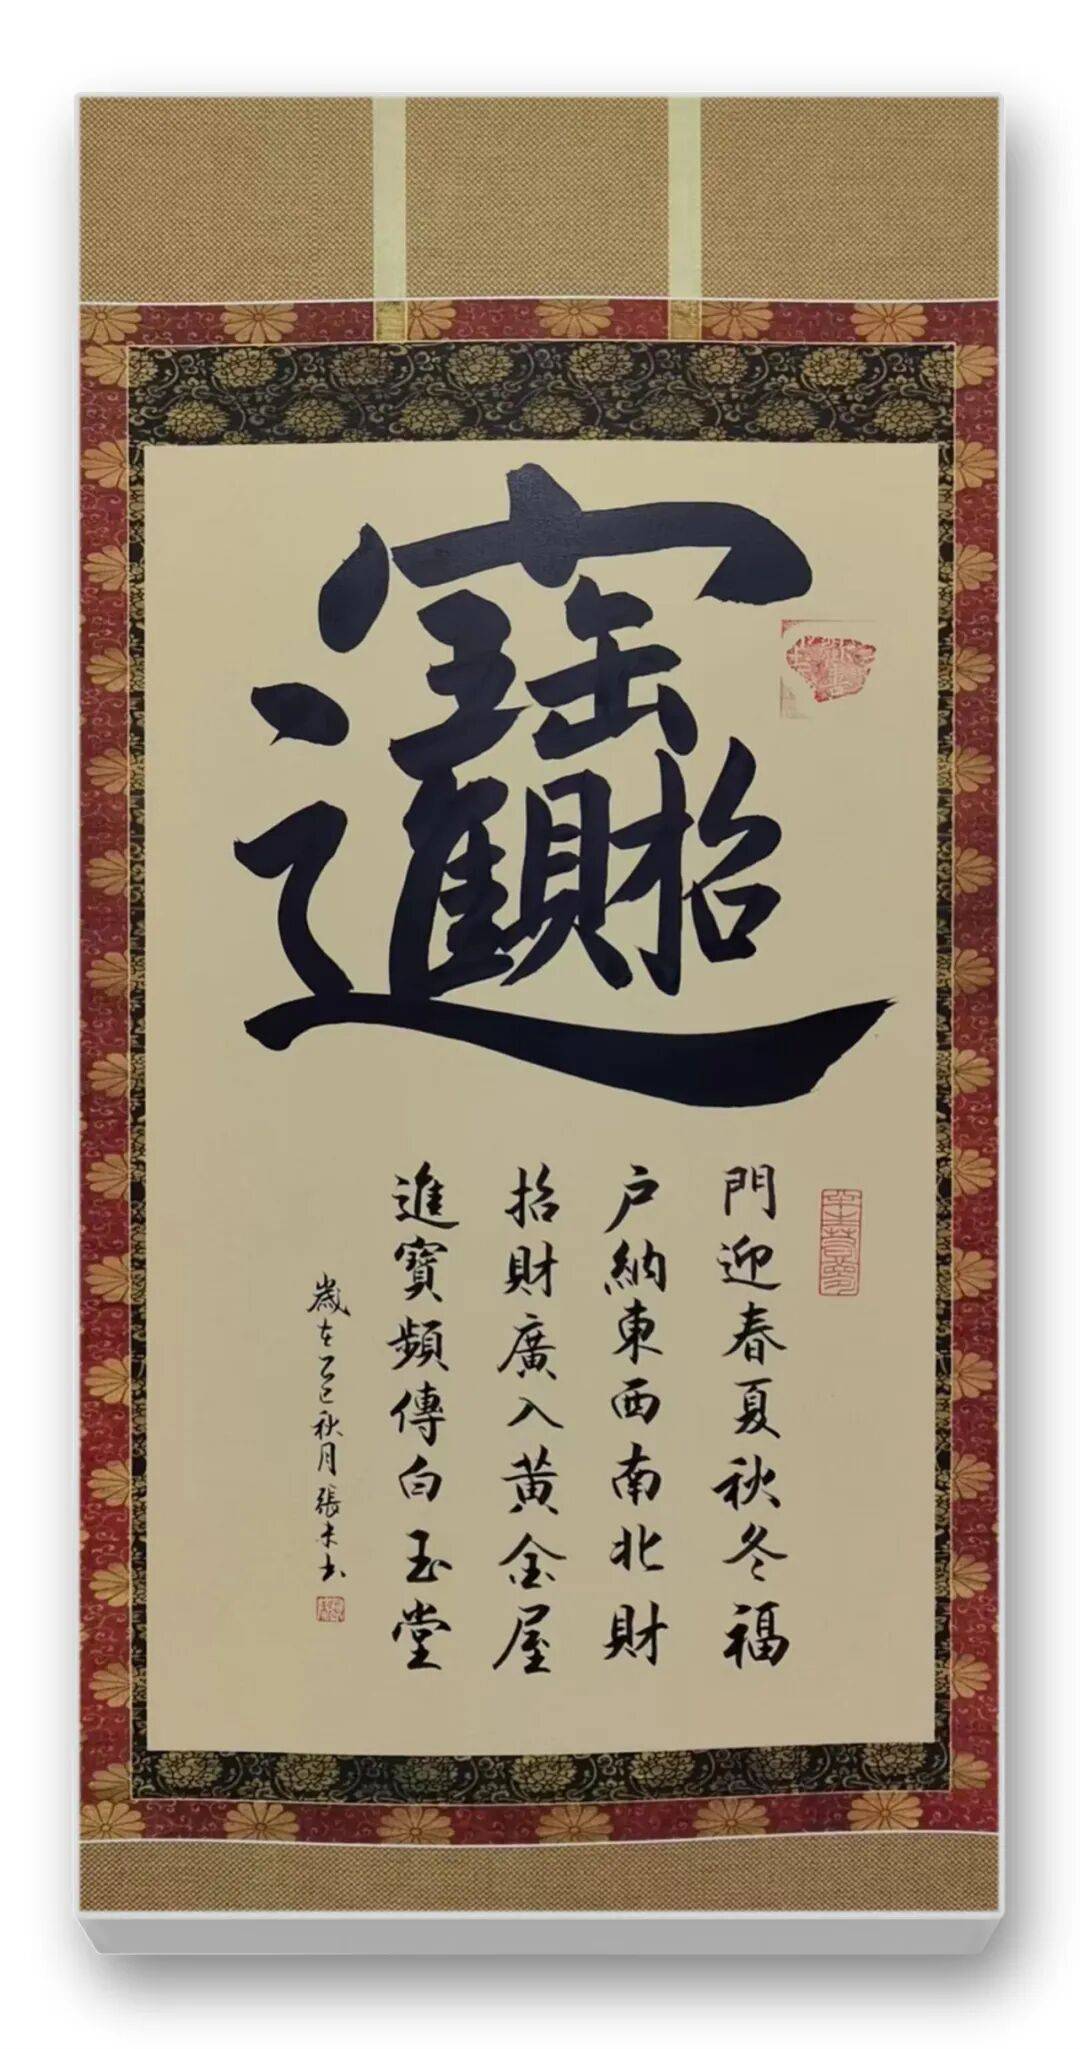 招財進寶
門迎春夏秋冬福
户納東西南北財
招財廣入黄金屋
進寶頻傳白玉堂
歲在乙巳秋月張未書